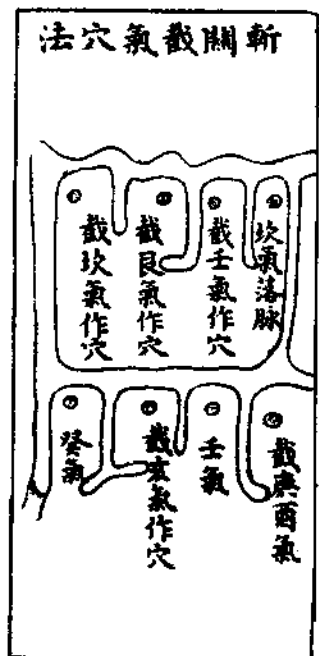 斬關截氣穴法
坎氣落脉
截壬氣作穴
截艮氣作穴
截坎氣作穴
截庚酉氣
壬氣
截亥氣作穴
癸氣